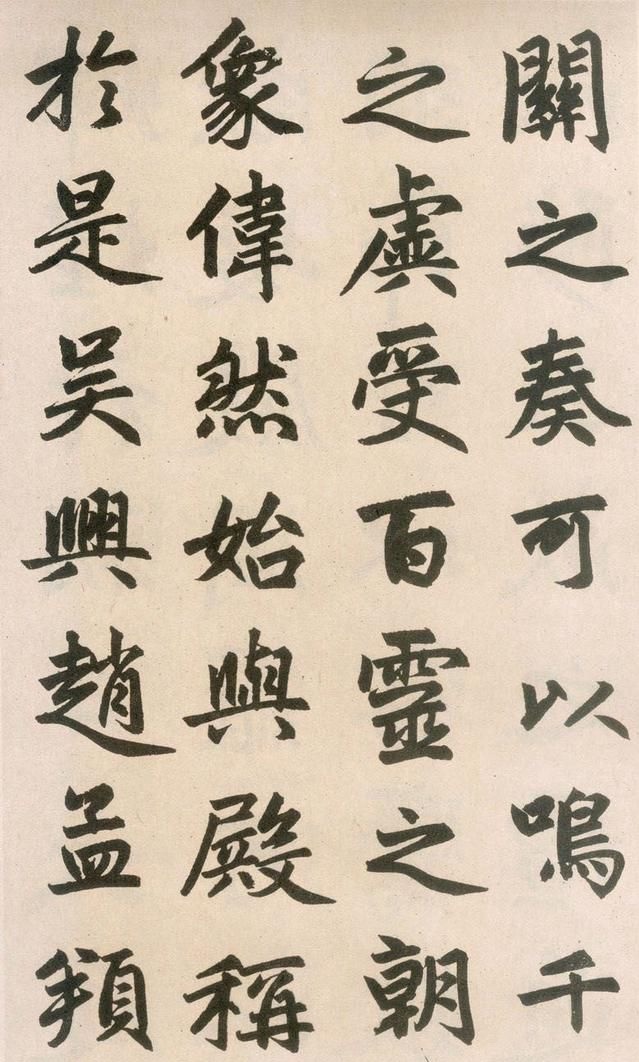 關之奏可以鳴千
之虡受百靈之朝
象偉然始與殿稱
於是吳興趙孟頫